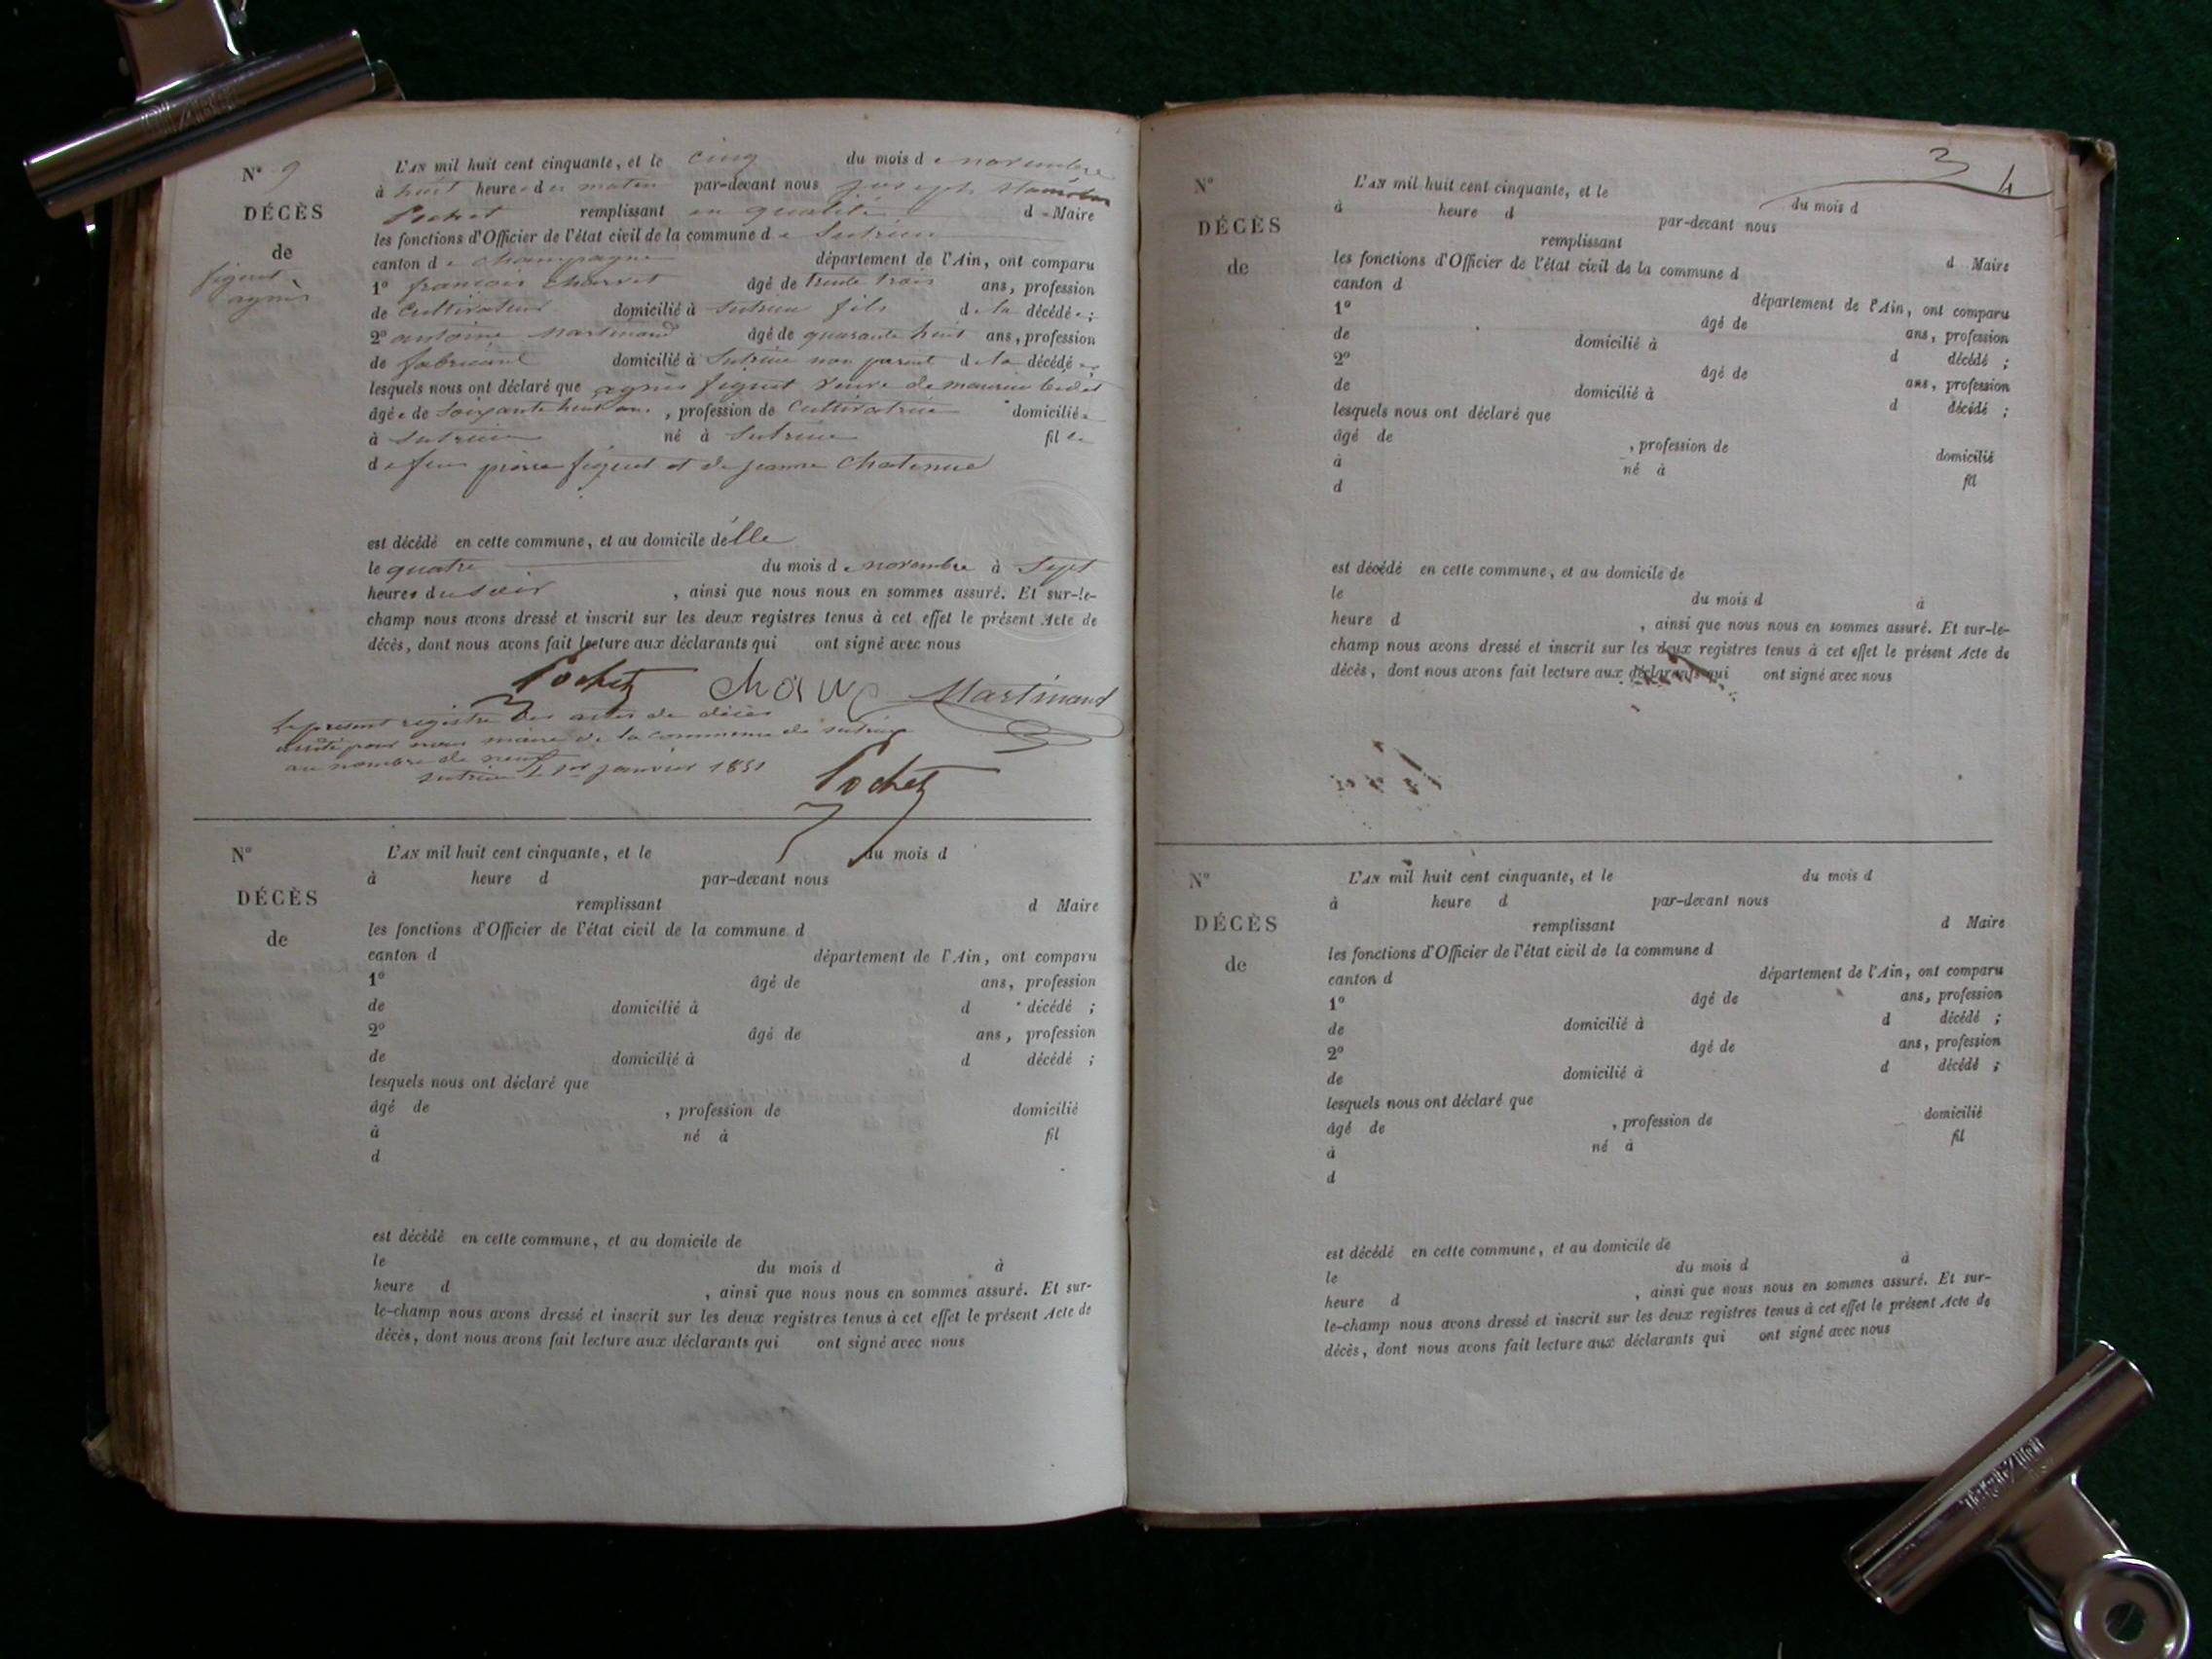 N° 9
DÉCÈS
de
figuet
agnès
L'AN mil huit cent cinquante, et le cinq du mois de novembre
à huit heures du matin par-devant nous joseph
Pochet remplissant en qualité de Maire
les fonctions d'Officier de l'état civil de la commune de Sutrieu
canton de champagne département de l'Ain, ont comparu
1° francois charvet âgé de trente trois ans, profession
de Cultivateur domicilié à sutrieu fils de la décédée ;
2° antoine Martinand âgé de quarante huit ans, profession
de fabricant domicilié à Sutrieu non parent de la décédée ;
lesquels nous ont déclaré que agnès figuet veuve de maurice
âgée de Soixante huit ans, profession de Cultivatrice domiciliée
à Sutrieu né à Sutrieu fille
de feu pierre figuet et de jeanne
est décédé en cette commune, et au domicile d'elle
le quatre du mois de novembre à Sept
heures du soir, ainsi que nous nous en sommes assuré. Et sur-le-
champ nous avons dressé et inscrit sur les deux registres tenus à cet effet le présent Acte de
décès, dont nous avons fait lecture aux déclarants qui ont signé avec nous
Pochet Martinand
Le présent registre des actes de décès
arrêté par nous maire de la commune de sutrieu
au nombre de neuf
sutrieu le 1er janvier 1851
Pochet
N°
DÉCÈS
de
L'AN mil huit cent cinquante, et le du mois d
à heure d par-devant nous
remplissant d Maire
les fonctions d'Officier de l'état civil de la commune d
canton d département de l'Ain, ont comparu
1° âgé de ans, profession
de domicilié à d décédé ;
2° âgé de ans, profession
de domicilié à d décédé ;
lesquels nous ont déclaré que
âgé de , profession de domicilié
à né à fil
d
est décédé en cette commune, et au domicile de
le du mois d à
heure d , ainsi que nous nous en sommes assuré. Et sur-
le-champ nous avons dressé et inscrit sur les deux registres tenus à cet effet le présent Acte de
décès, dont nous avons fait lecture aux déclarants qui ont signé avec nous
3
4
N°
DÉCÈS
de
L'AN mil huit cent cinquante, et le du mois d
à heure d par-devant nous
remplissant d Maire
les fonctions d'Officier de l'état civil de la commune d
canton d département de l'Ain, ont comparu
1° âgé de ans, profession
de domicilié à d décédé ;
2° âgé de ans, profession
de domicilié à d décédé ;
lesquels nous ont déclaré que
âgé de , profession de domicilié
à né à fil
d
est décédé en cette commune, et au domicile de
le du mois d à
heure d , ainsi que nous nous en sommes assuré. Et sur-le-
champ nous avons dressé et inscrit sur les deux registres tenus à cet effet le présent Acte de
décès, dont nous avons fait lecture aux déclarants qui ont signé avec nous
N°
DÉCÈS
de
L'AN mil huit cent cinquante, et le du mois d
à heure d par-devant nous
remplissant d Maire
les fonctions d'Officier de l'état civil de la commune d
canton d département de l'Ain, ont comparu
1° âgé de ans, profession
de domicilié à d décédé ;
2° âgé de ans, profession
de domicilié à d décédé ;
lesquels nous ont déclaré que
âgé de , profession de domicilié
à né à fil
d
est décédé en cette commune, et au domicile de
le du mois d à
heure d , ainsi que nous nous en sommes assuré. Et sur-
le-champ nous avons dressé et inscrit sur les deux registres tenus à cet effet le présent Acte de
décès, dont nous avons fait lecture aux déclarants qui ont signé avec nous